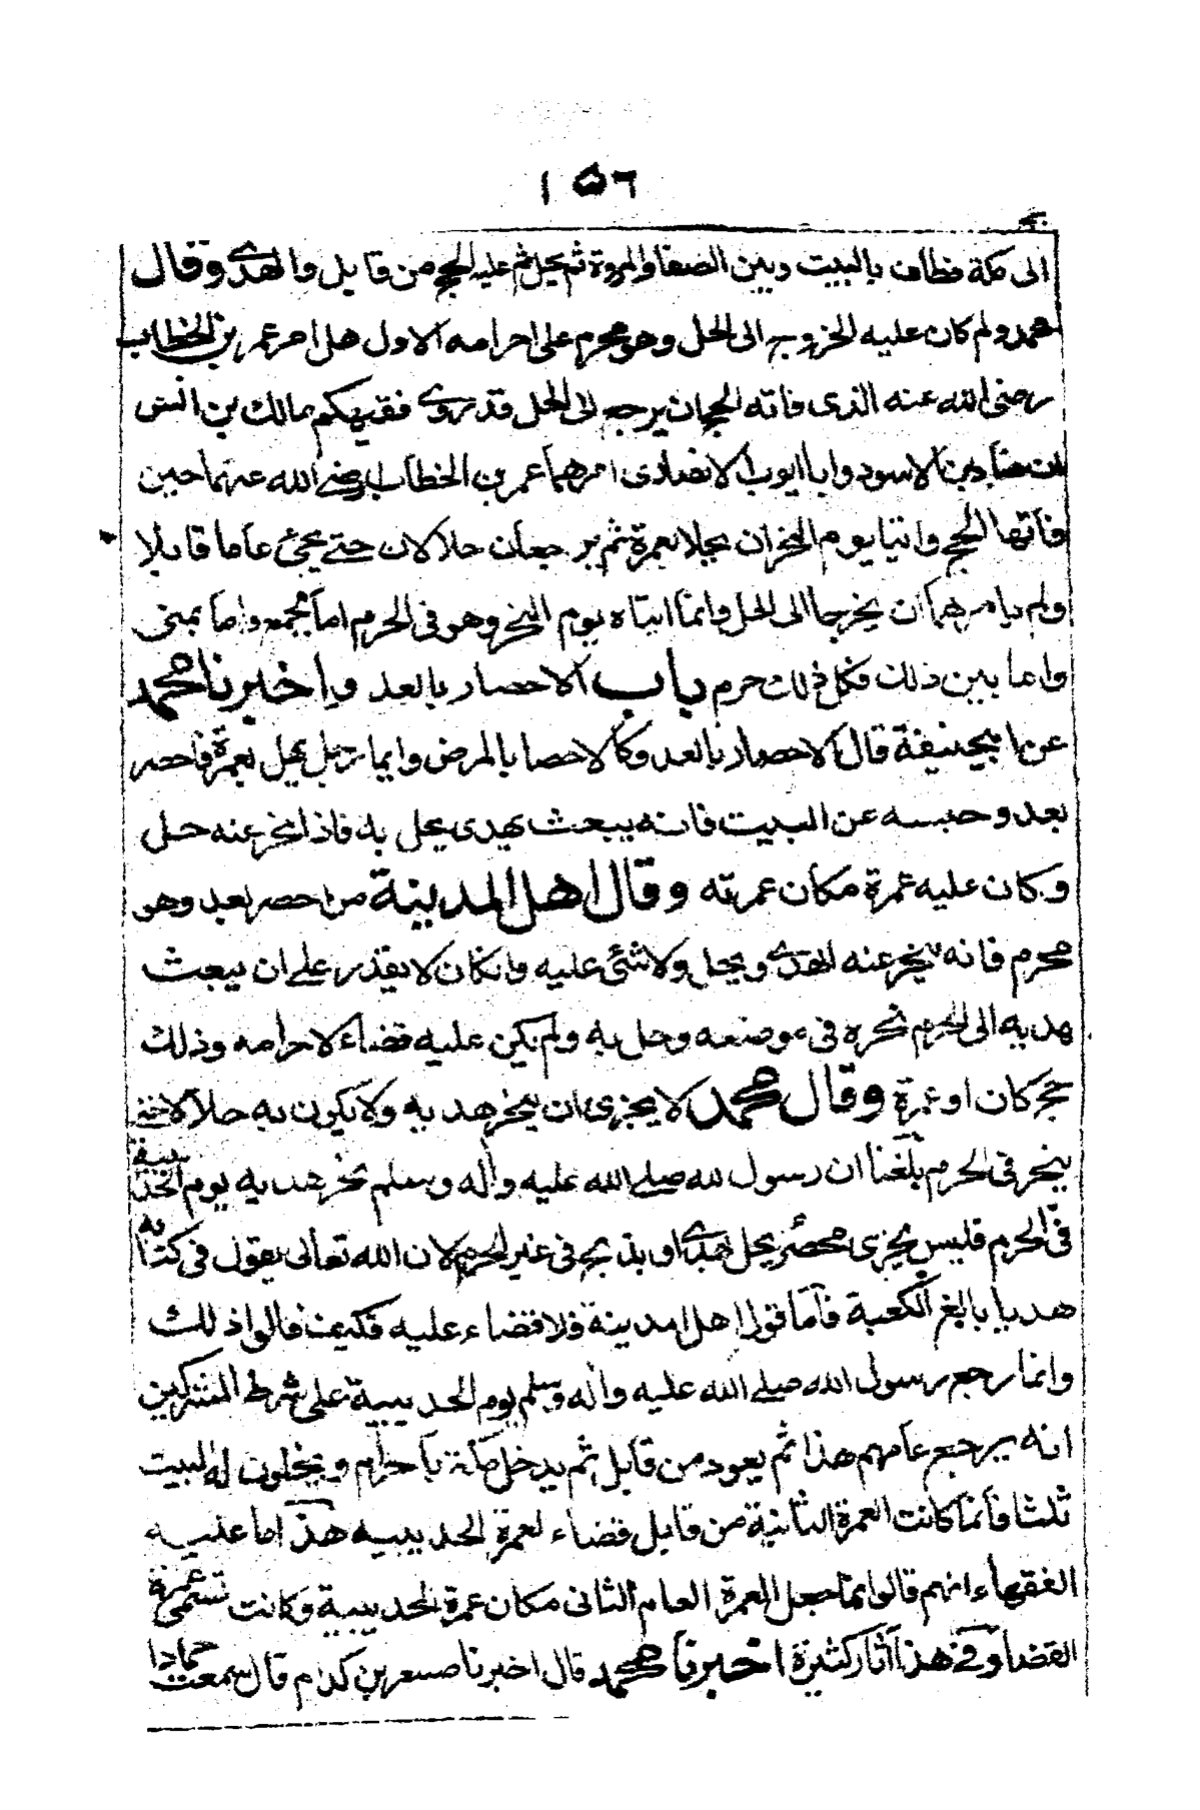 ١٥٦
الى مكة فطاف بالبيت وبين الصفا والمروة ثم يحل ثم عليه الحج من قابل والهدى وقال
محمد ولم كان عليه الخروج الى الحل وهو محرم على احرامه الاول هل امر عمر بن الخطاب
رضى الله عنه الذى فاته الحج ان يرجع الى الحل قد روى فقيهكم مالك بن انس
ان هبار بن الاسود وابا ايوب الانصارى امرهما عمر بن الخطاب رضى الله عنهما حين
فاتها الحج واتيا يوم النحر ان يحلا بعمرة ثم يرجعان حلالان حتى يجئ عاما قابلا
ولم يامرهما ان يخرجا الى الحل وانما اتياه يوم النحر وهو فى الحرم اما بجمع واما بمنى
واما بين ذلك فكل ذلك حرم باب الاحصار بالعدو اخبرنا محمد
عن ابيحنيفة قال الاحصار بالعدو كالاحصا بالمرض وايما رجل يهل بعمرة فاحصر
بعدو حبسه عن البيت فانه يبعث بهدى يحل به فاذا نحر عنه حل
وكان عليه عمرة مكان عمرته وقال اهل المدينة من احصر بعد وهو
محرم فانه ينحر عنه الهدى ويحل ولا شئ عليه وان كان لا يقدر على ان يبعث
هديه الى الحرم نحره فى موضعه وحل به ولم يكن عليه قضاء لاحرامه وذلك
حج كان او عمرة وقال محمد لا يجزى ان ينحر هديه ولا يكون به حلالا حتى
ينحر فى الحرم بلغنا ان رسول الله صلى الله عليه واله وسلم نحر هديه يوم الحديبية
فى الحرم فليس يجزى محصر يحل هديا او يذبح فى غير الحرم لان الله تعالى يقول فى كتابه
هديا بالغ الكعبة فاما قول اهل امدينة فلا قضاء عليه فكيف قالوا ذلك
وانما رجع رسول الله صلى الله عليه واله وسلم يوم الحديبية على شرط المشركين
انه يرجع عامهم هذا ثم يعود من قابل ثم يدخل مكة باحرام ويخلون له البيت
ثلثا فانما كانت العمرة الثانية من قابل قضاء لعمرة الحديبيه هذا ما عليه
الفقهاء انهم قالوا انما جعل العمرة العام الثانى مكان عمرة الحديبية وكانت تسمى عمرة
القضا وفى هذا آثار كثيرة اخبرنا محمد قال اخبرنا مسعر بن كدام قال سمعت حمادا